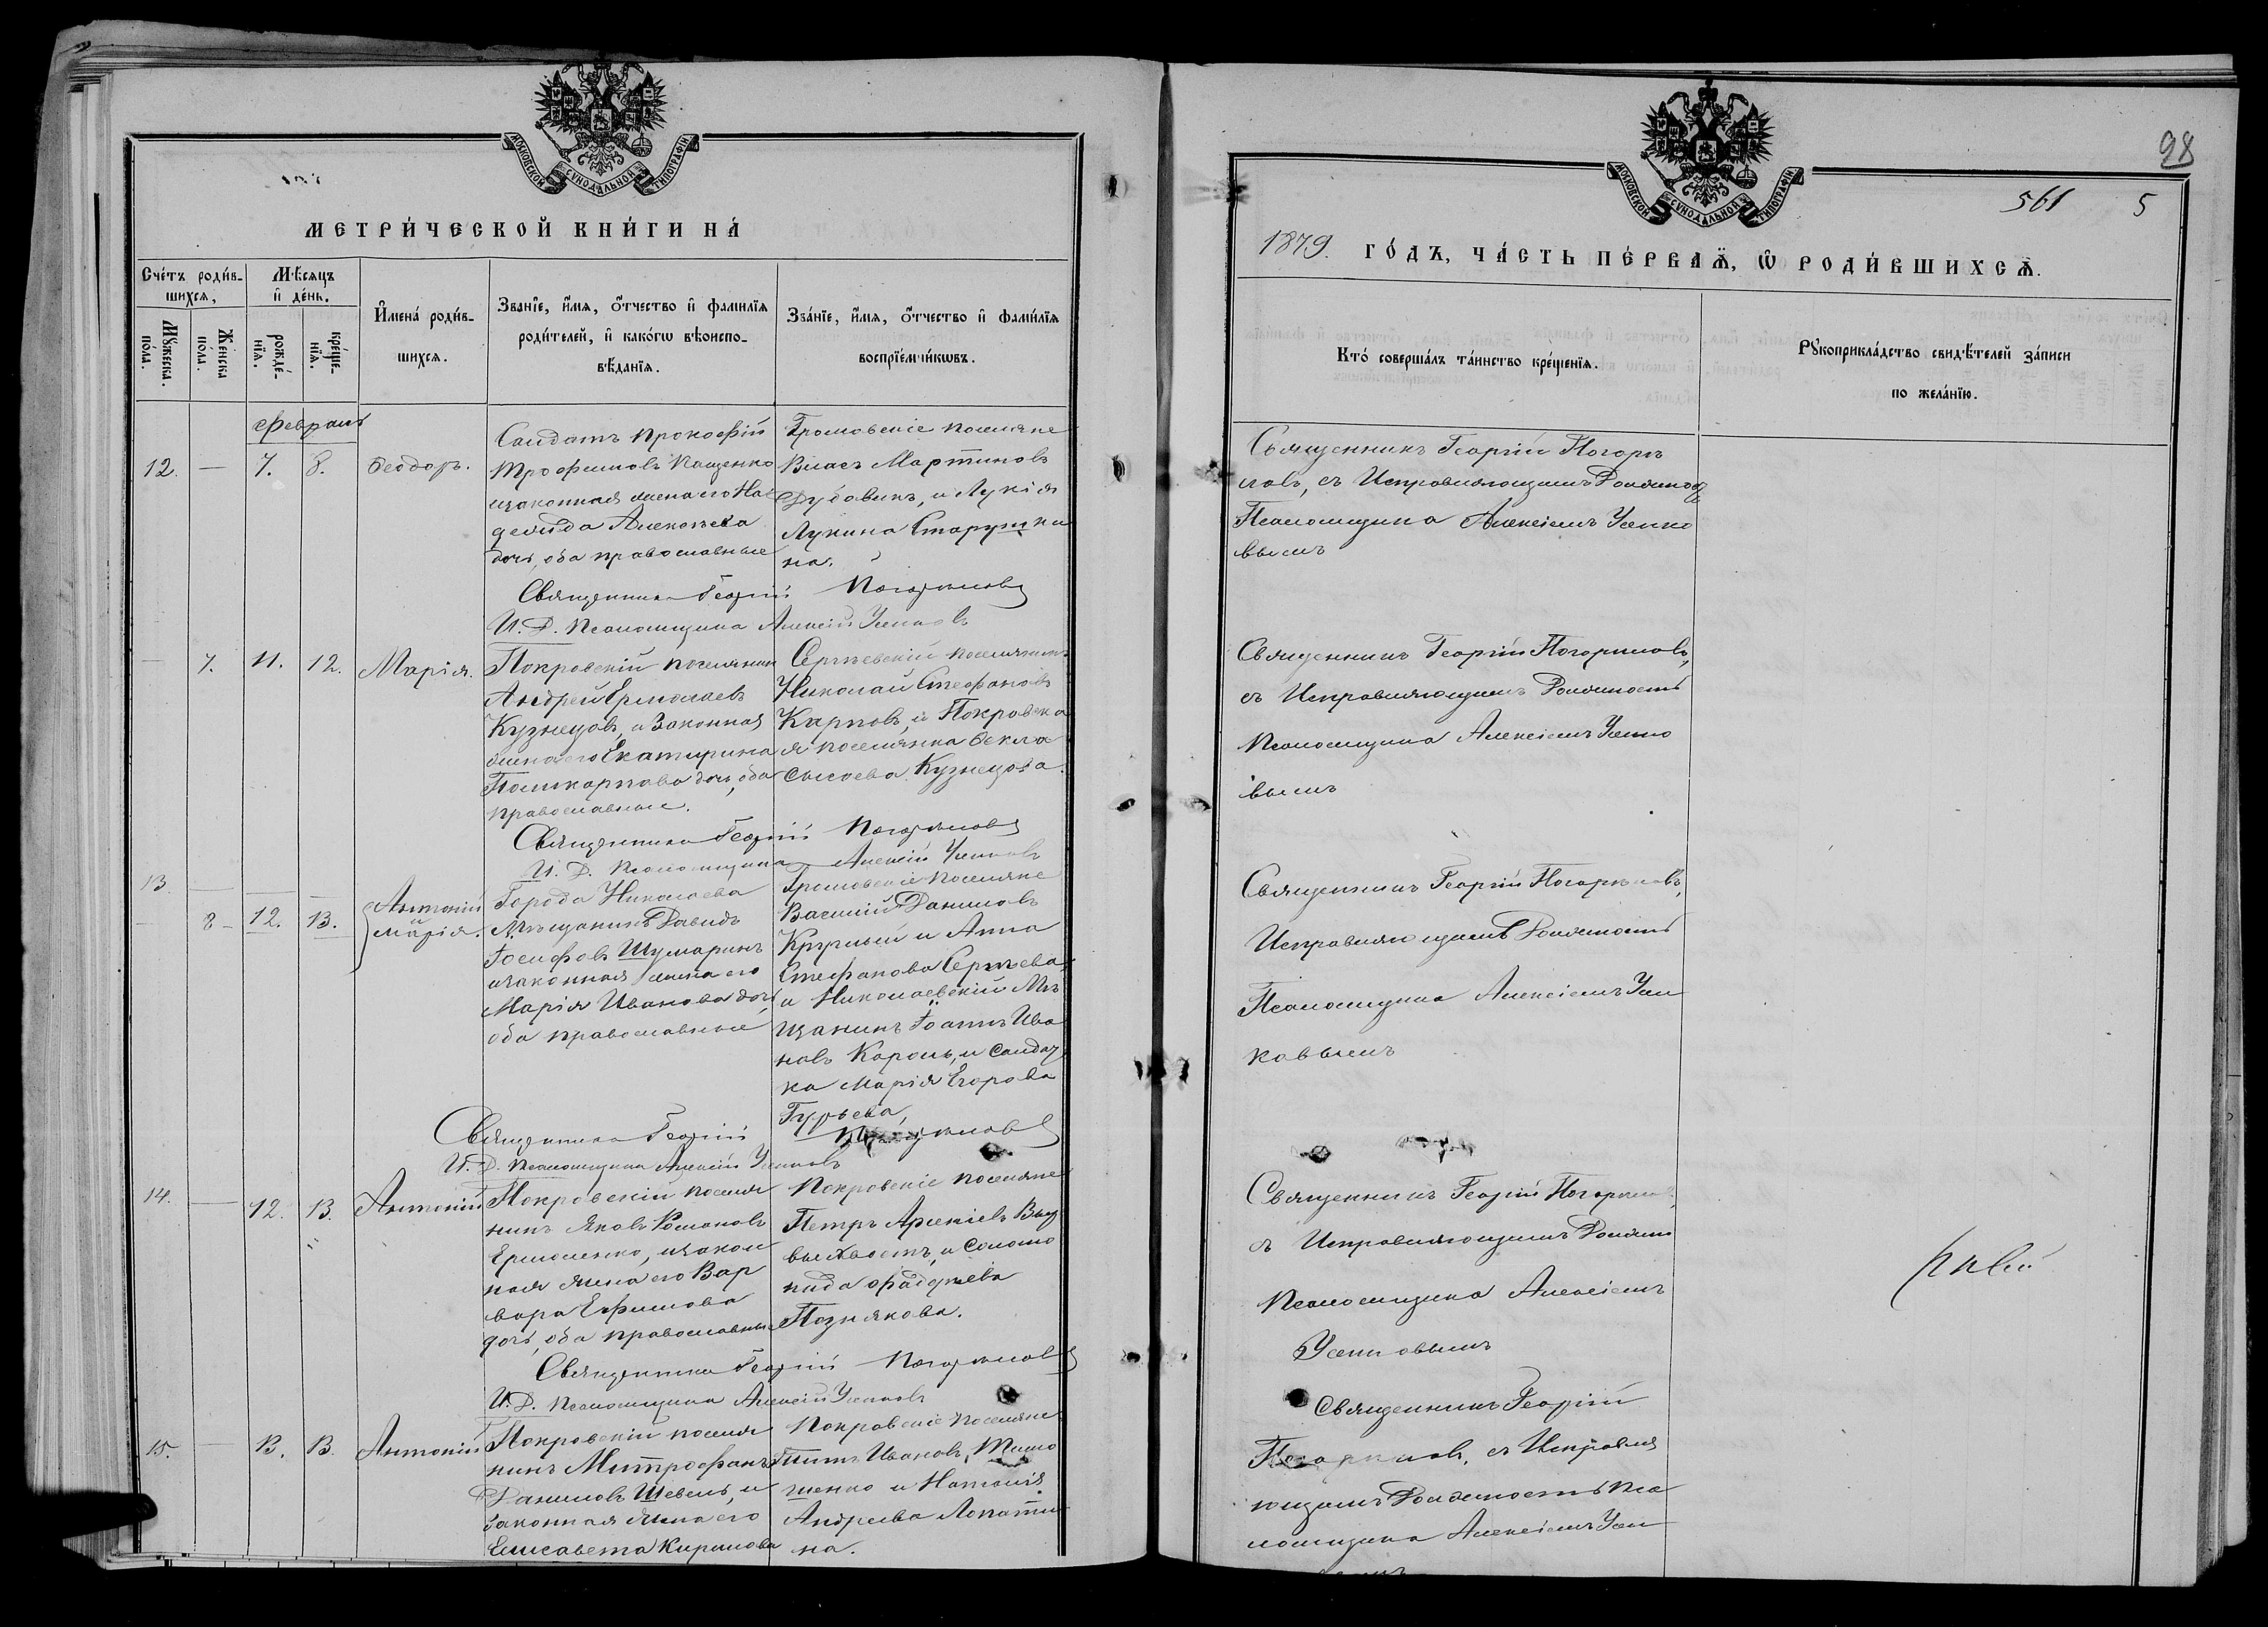 МОСКОВСКОЙ СУНОДАЛЬНОЙ ТИПОГРАФІИ
МЕТРИ́ЧЕСКОЙ КНИ́ГИ НА́
Сче́тъ роди́в-
шихся,
Мѣ́сяцъ
и҆ де́нь.
И҆мена́ роди́в-
шихся.
Зва́нїе, и҆́мя, ѻ҆́тчество и҆ фами́лїя
роди́телей, и҆ како́гѡ вѣроиспо-
вѣ́данїя.
Зва́нїе, и҆́мя, ѻ҆́тчество и҆ фами́лїя
воспрїе́мникѡвъ.
Мꙋ́жеска
по́ла.
Же́нска
по́ла.
рожде́-
нїя.
креще́-
нїя.
Февраль
12. — 7. 8. Ѳеодоръ.
Солдатъ Прокофій
Трофимовъ Кащенко
и законная жена его На
дежда Алексѣева
дочь, оба православные
Громовскіе поселяне
Власъ Мартиновъ
и Лукія
Лукина Старушки
на.
Священникъ Георгій Погорѣловъ
И. Д. Псаломщика Алексій Усенковъ
— 7. 11. 12. Марія.
Покровскій поселянинъ
Андрей Ермолаевъ
Кузнецовъ, и Законная
жена его Екатирина
Поликарпова дочь, оба
православные.
Сергѣевскій поселянинъ
Николай Стефановъ
Карповъ, и Покровска
я поселянка Ѳекла
Сысоева Кузнецова.
Священникъ Георгій Погорѣловъ
И. Д. Псаломщика Алексій Усенковъ
13. — — —
— 8 — 12. 13. Антоній
и
Марія.
Города Николаева
Мѣщанинъ Давидъ
Іосифовъ Шумаринъ
и законная жена его
Марія Иванова дочь,
оба православные
Громовскіе поселяне
Василій Даниловъ
Круглый и Анна
Стефанова Сергѣева,
и Николаевскій Мѣ
щанинъ Іоаннъ Ива
новъ Король, и солдат
ка Марія Егорова
Гурьева,
Священникъ Георгій Погорѣловъ
И. Д. Псаломщика Алексій Усенковъ
14. — 12. 13. Антоній
Покровскій поселя
нинъ Яковъ Романовъ
Ермоленко, и закон
ная жена его Вар
вара Ефимова
дочь, оба православные
Покровскіе поселяне
Петръ Арсеніевъ
и Соломо
нида Фаддѣева
Познякова.
Священникъ Георгій Погорѣловъ
И. Д. Псаломщика Алексій Усенковъ
15. — 13. 13. Антоній
Покровскій поселя
нинъ Митрофанъ
Даниловъ Шевель, и
законная жена его
Елисавета Кирилова
Покровскіе поселяне
Титъ Ивановъ Тимо
шенко и Наталія
Андреева Лопати
на.
98
561 5
МОСКОВСКОЙ СУНОДАЛЬНОЙ ТИПОГРАФІИ
1879. ГО́ДЪ, ЧА́СТЬ ПЕ́РВАЯ, Ѡ РОДИ́ВШИХСЯ.
Кто́ соверша́лъ та́инство креще́нїя.
Рꙋкоприкла́дство свидѣ́телей за́писи
по жела́нїю.
Священникъ Георгій Погорѣ
ловъ, съ Исправляющимъ Должность
Псаломщика Алексіемъ Усенко
вымъ
Священникъ Георгій Погорѣловъ,
съ Исправляющимъ Должность
Псаломщика Алексіемъ Усенко
вымъ
Священникъ Георгій Погорѣловъ,
Исправляющимъ Должность
Псаломщика Алексіемъ Усен
ковымъ
Священникъ Георгій Погорѣловъ,
съ Исправляющимъ Должность
Псаломщика Алексіемъ
Усенковымъ
Священникъ Георгій
Погорѣловъ, съ Исправля
ющимъ Должность Пса
ломщика Алексіемъ Усен